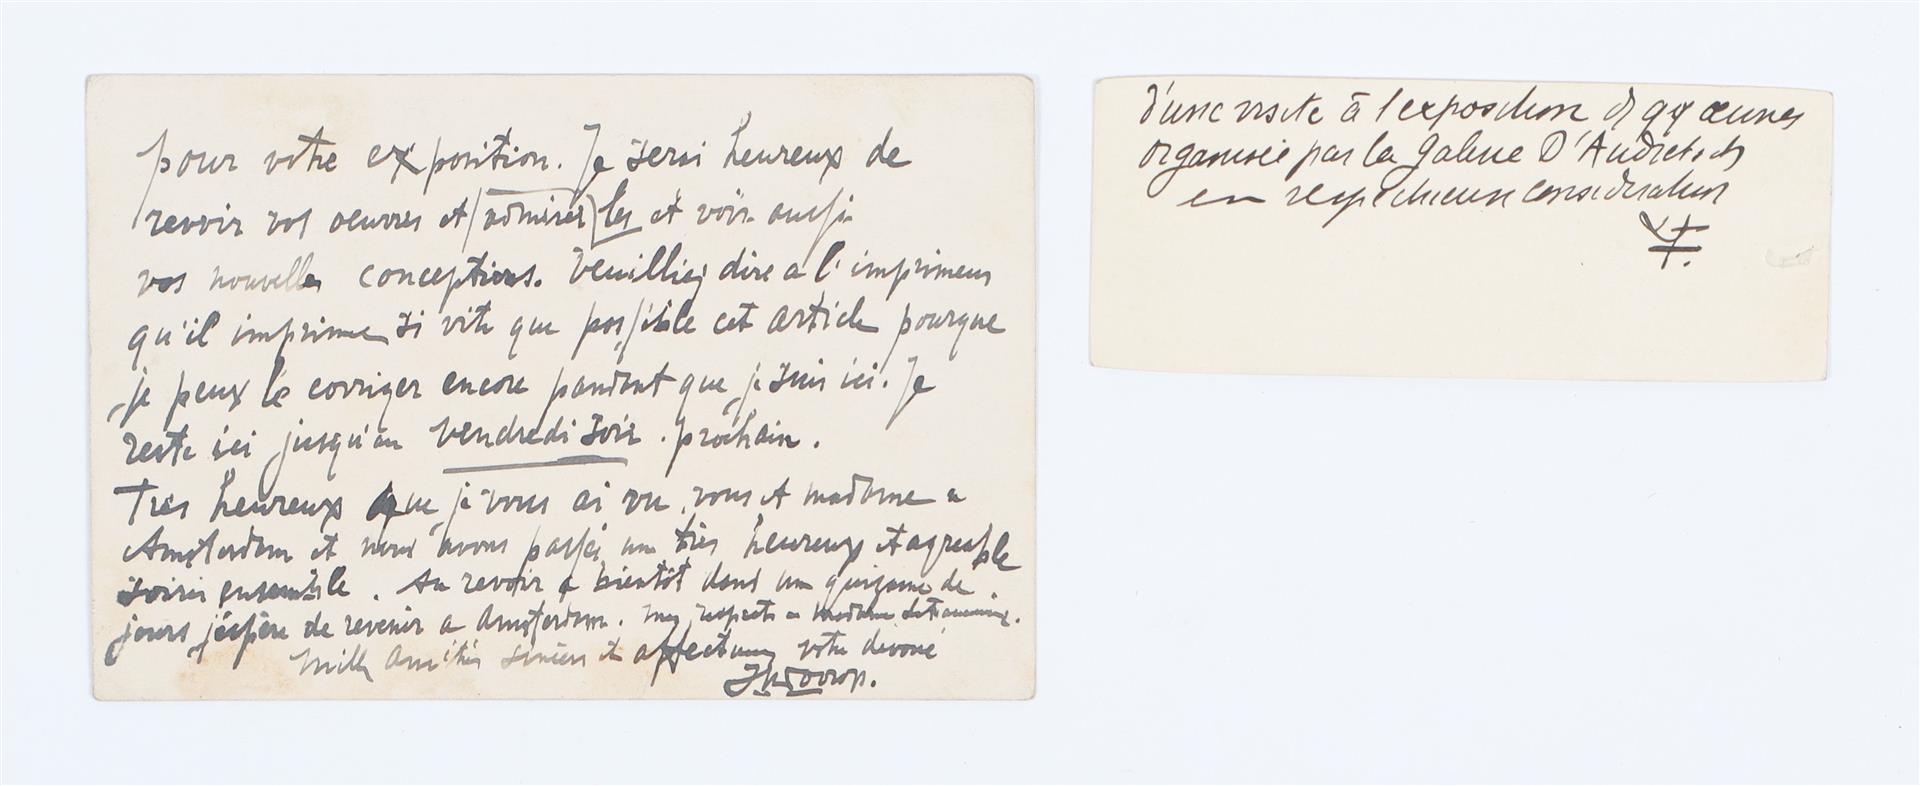 pour votre exposition. Je serai heureux de
revoir vos oeuvres et (admirer) les et voir aussi
vos nouvelles conceptions. Veuilliez dire a l'imprimeur
qu'il imprime si vite que possible cet article pourque
je peux le corriger encore pendant que je suis ici. Je
reste ici jusqu'au vendredi soir. prochain.
Très heureux que je vous ai vu, vous et madame a
Amsterdam et nous avons passé un très heureux et agreable
soirée ensemble. Au revoir a bientôt dans un quinzaine de
jours j'espère de revenir a Amsterdam. mes respects a madame
Mille amitiés sincères et affectueux votre devoué
JThToorop.
d'une visite à l'exposition de 99 œuvres
organisée par la Galerie D'Audretsch
en respectueuse consideration